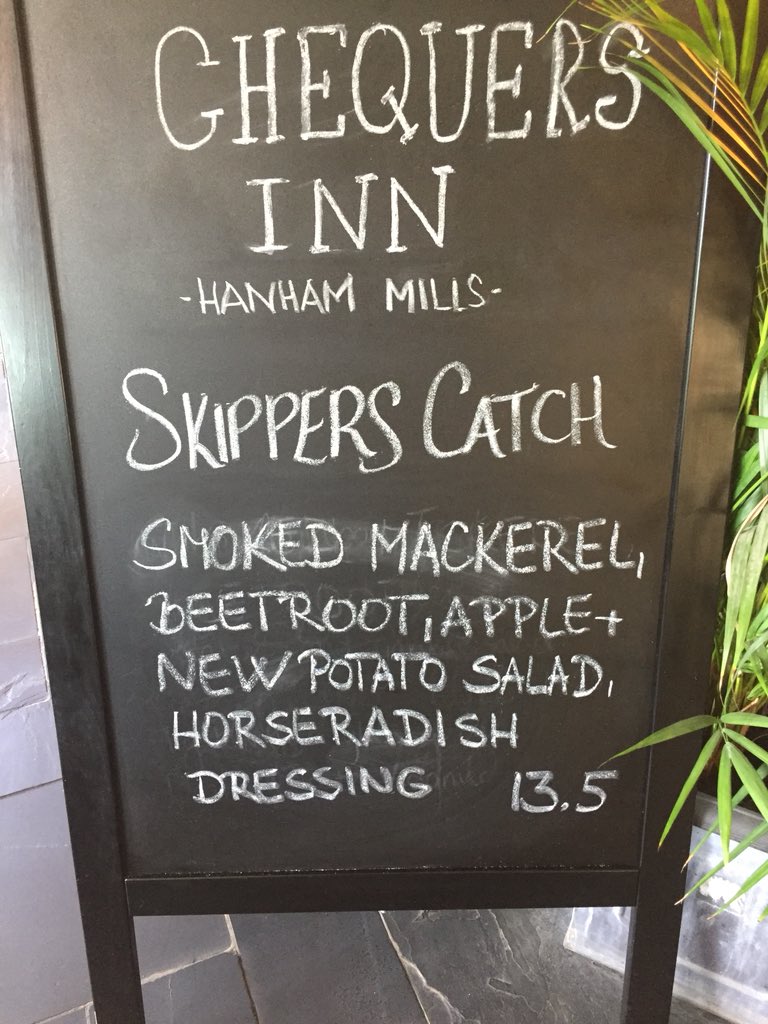 CHEQUERS
INN
-HANHAM MILLS-
SKIPPERS CATCH
SMOKED MACKEREL,
BEETROOT, APPLE +
NEW POTATO SALAD,
HORSERADISH
DRESSING 13.5